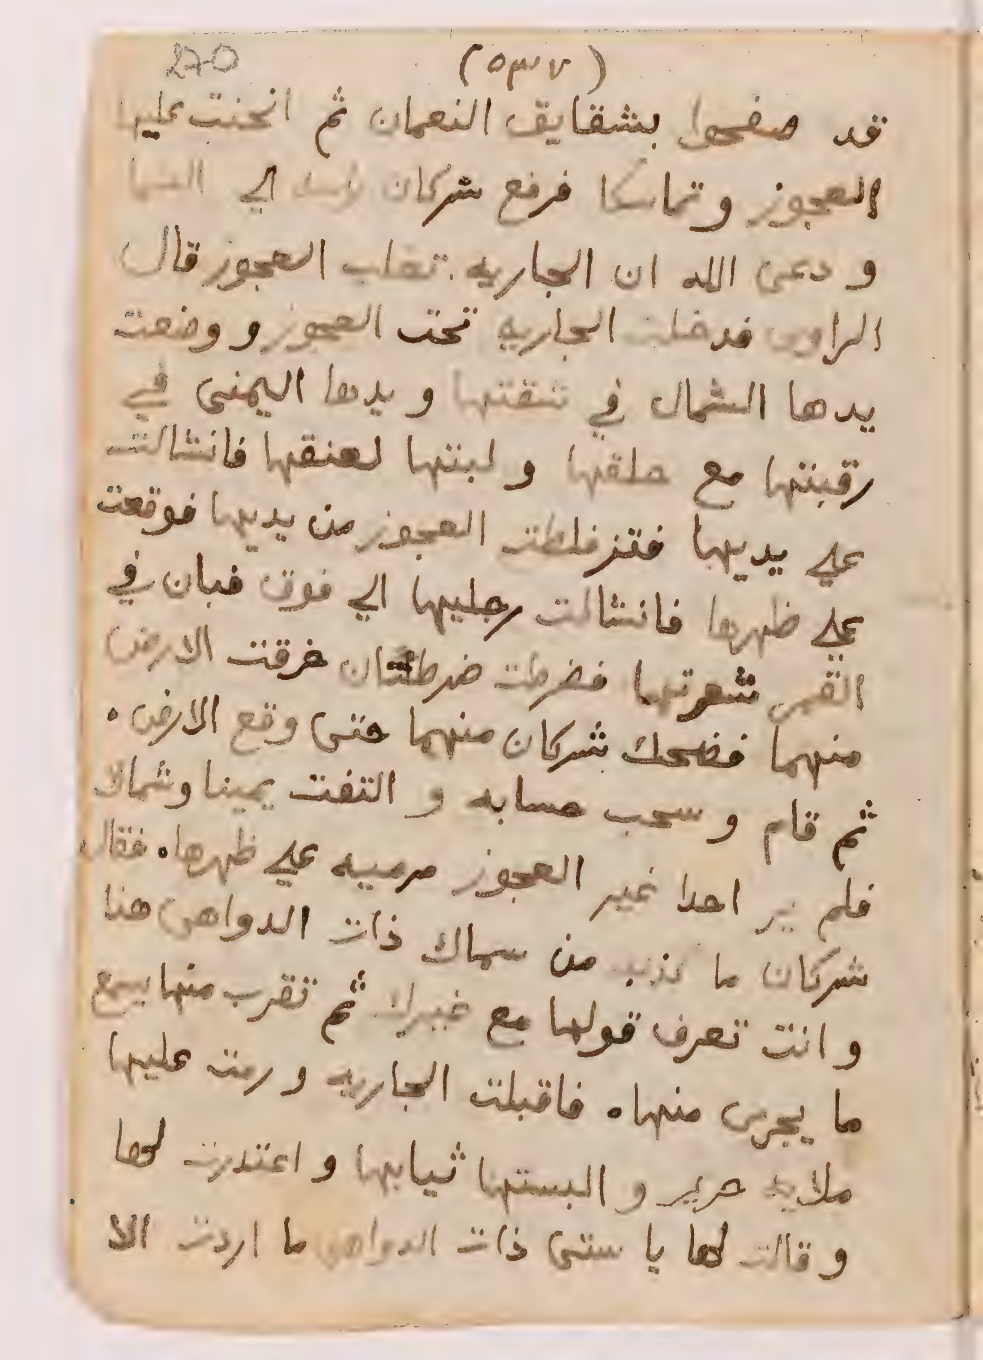 270 (٥٣٧)
قد صفحوا بشقايق النعمان ثم انحنت عليها
العجوز وتماسكا فرفع شركان راسه الي السما
و دعى الله ان الجاريه تغلب العجوز قال
الراوى فدخلت الجاريه تحت العجوز و وضعت
يدها الشمال في شقتها و يدها اليمنى في
رقبتها مع حلقها و لبتها لعنقها فانشالت
علي يديها فتزفلطت العجوز من يديها فوقعت
علي ظهرها فانشالت رجليها الي فوق فبان في
القمر شعرتها فضرطت ضرطتان خرقت الارض
منهما فضحك شركان منهما حتى وقع الارض .
ثم قام و سحب حسابه و التفت يمينا وشمالا
فلم ير احدا غير العجوز مرميه علي ظهرها . فقال
شركان ما كذب من سماك ذات الدواهى هذا
و انت تعرف قولها مع غيرك ثم تقرب منها يسمع
ما يجرى منها . فاقبلت الجاريه و رمت عليها
ملايه حرير و البستها ثيابها و اعتدرت لها
و قالت لها يا ستى ذات الدواهى ما اردت الا